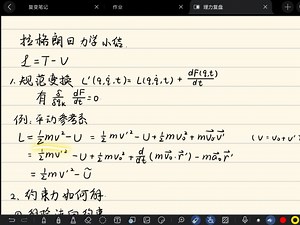 复变笔记 作业 理力复盘
拉格朗日力学小结
L = T - U
1. 规范变换 L'(q,q̇,t) = L(q,q̇,t) + dF(q,t)/dt
有 δ/δqₖ dF/dt = 0
例: 平动参考系
L = ½mv² - U = ½mv'² - U + ½mv₀² + mv⃗₀v⃗' (v = v₀ + v'
= ½mv'² - U + ½mv₀² + d/dt(mv⃗₀·r⃗') - ma⃗₀r⃗'
= ½mv'² - Ũ
2. 约束力如何解